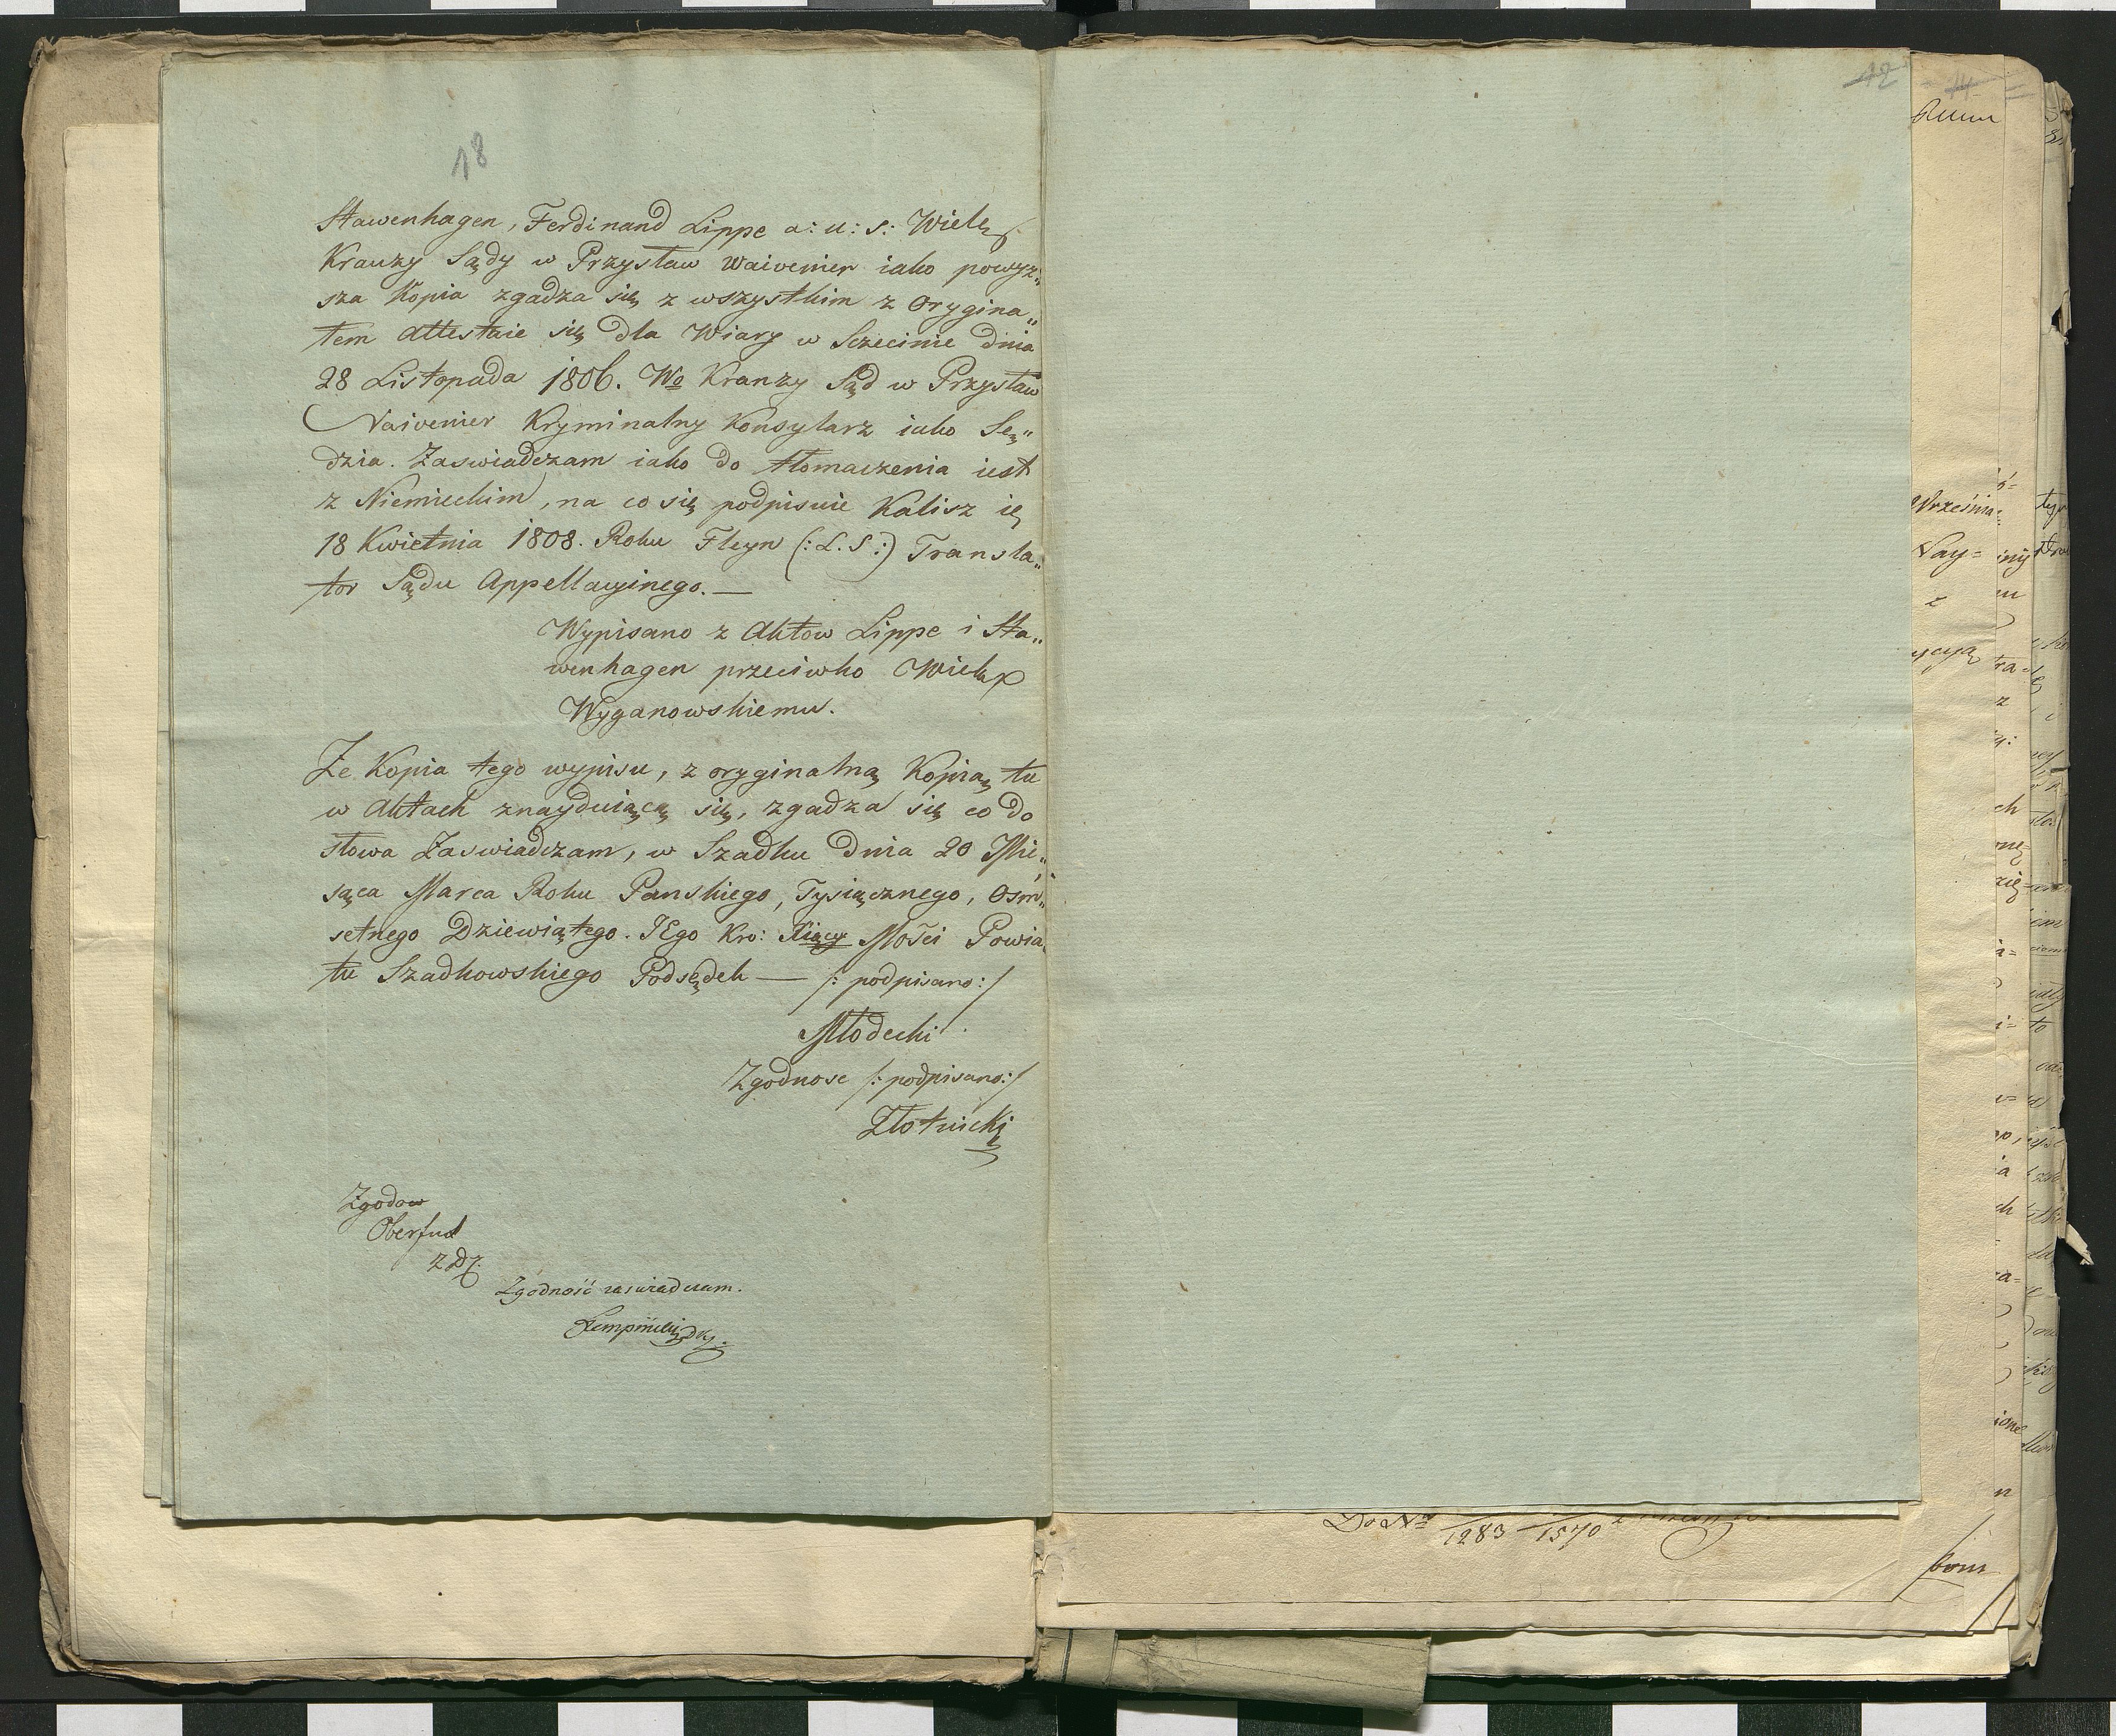 18
Stawenhagen, Ferdinand Lippe a: u: s: Wiele
Kranzy Sądy w Przysław Waivenier iako powyz„
sza Kopia zgadza się z wszystkim z orygina„
łem attestuie się dla Wiary w Sczecinie dnia
28 Listopada 1806. Wo Kranzy Sąd w Przysław
Vaivenier Kryminalny Konsylarz iako Sę„
dzia. Zaswiadczam iako do tłomaczenia iest
z Niemieckim, na co się podpisuie Kalisz
18 Kwietnia 1808. Roku Fleyn (: L. S :) Transla„
tor Sądu Appellacyinego. —
Wypisano z Aktow Lippe i Sta„
wenhagen przeciwko Wielx
Wyganowskiemu.
Ze Kopia tego wypisu, z oryginalną Kopią tu
w Aktach znayduiącą się, zgadza się co do
słowa Zaswiadczam, w Szadku dnia 20 Mie„
sąca Marca Roku Panskiego, Tysiącznego, osm„
setnego Dziewiątego. JEgo Kro: Xiący Mości Powia„
tu Szadkowskiego Podsędek — /: podpisano :/
Młodecki
Zgodnosc /: podpisano :/
Złotnicki
Zgodno
Zgodność zaswiadczam.
12
14
Wrześnią
Nay=
z
ycyą
Do No 1283 1570